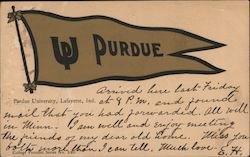 PU PURDUE
Arrived here last Friday
Purdue University, Lafayette, Ind. at 9 P.M. and found
mail that you had forwarded. All well
in Minn. I am well and enjoy meeting
the friends of my dear old home. Miss you
both more than I can tell. Much love.
College Pennant Series No.
E. H.